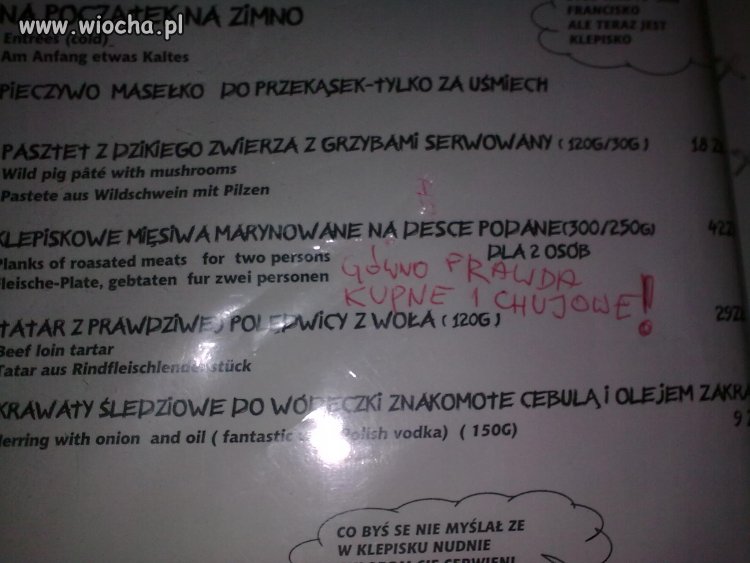 www.wiocha.pl
NA POCZĄTEK NA ZIMNO
Entrees (cold)
Am Anfang etwas Kaltes
FRANCISKO
ALE TERAZ JEST
KLEPISKO
PIECZYWO MASEŁKO DO PRZEKĄSEK-TYLKO ZA UŚMIECH
PASZTET Z DZIKIEGO ZWIERZA Z GRZYBAMI SERWOWANY (120G/30G) 18 ZŁ
Wild pig pâté with mushrooms
Pastete aus Wildschwein mit Pilzen
KLEPISKOWE MIĘSIWA MARYNOWANE NA DESCE PODANE(300/250G) 42Z
DLA 2 OSÓB
Planks of roasated meats for two persons
fleische-Plate, gebtaten fur zwei personen
GÓWNO PRAWDA
KUPNE I CHUJOWE!
TATAR Z PRAWDZIWEJ POLĘDWICY Z WOŁA (120G) 29ZŁ
Beef loin tartar
Tatar aus Rindfleischlendenstück
KRAWATY ŚLEDZIOWE DO WÓDECZKI ZNAKOMOTE CEBULĄ I OLEJEM ZAKRA
Herring with onion and oil ( fantastic Polish vodka) ( 150G) 9
CO BYŚ SE NIE MYŚLAŁ ZE
W KLEPISKU NUDNIE